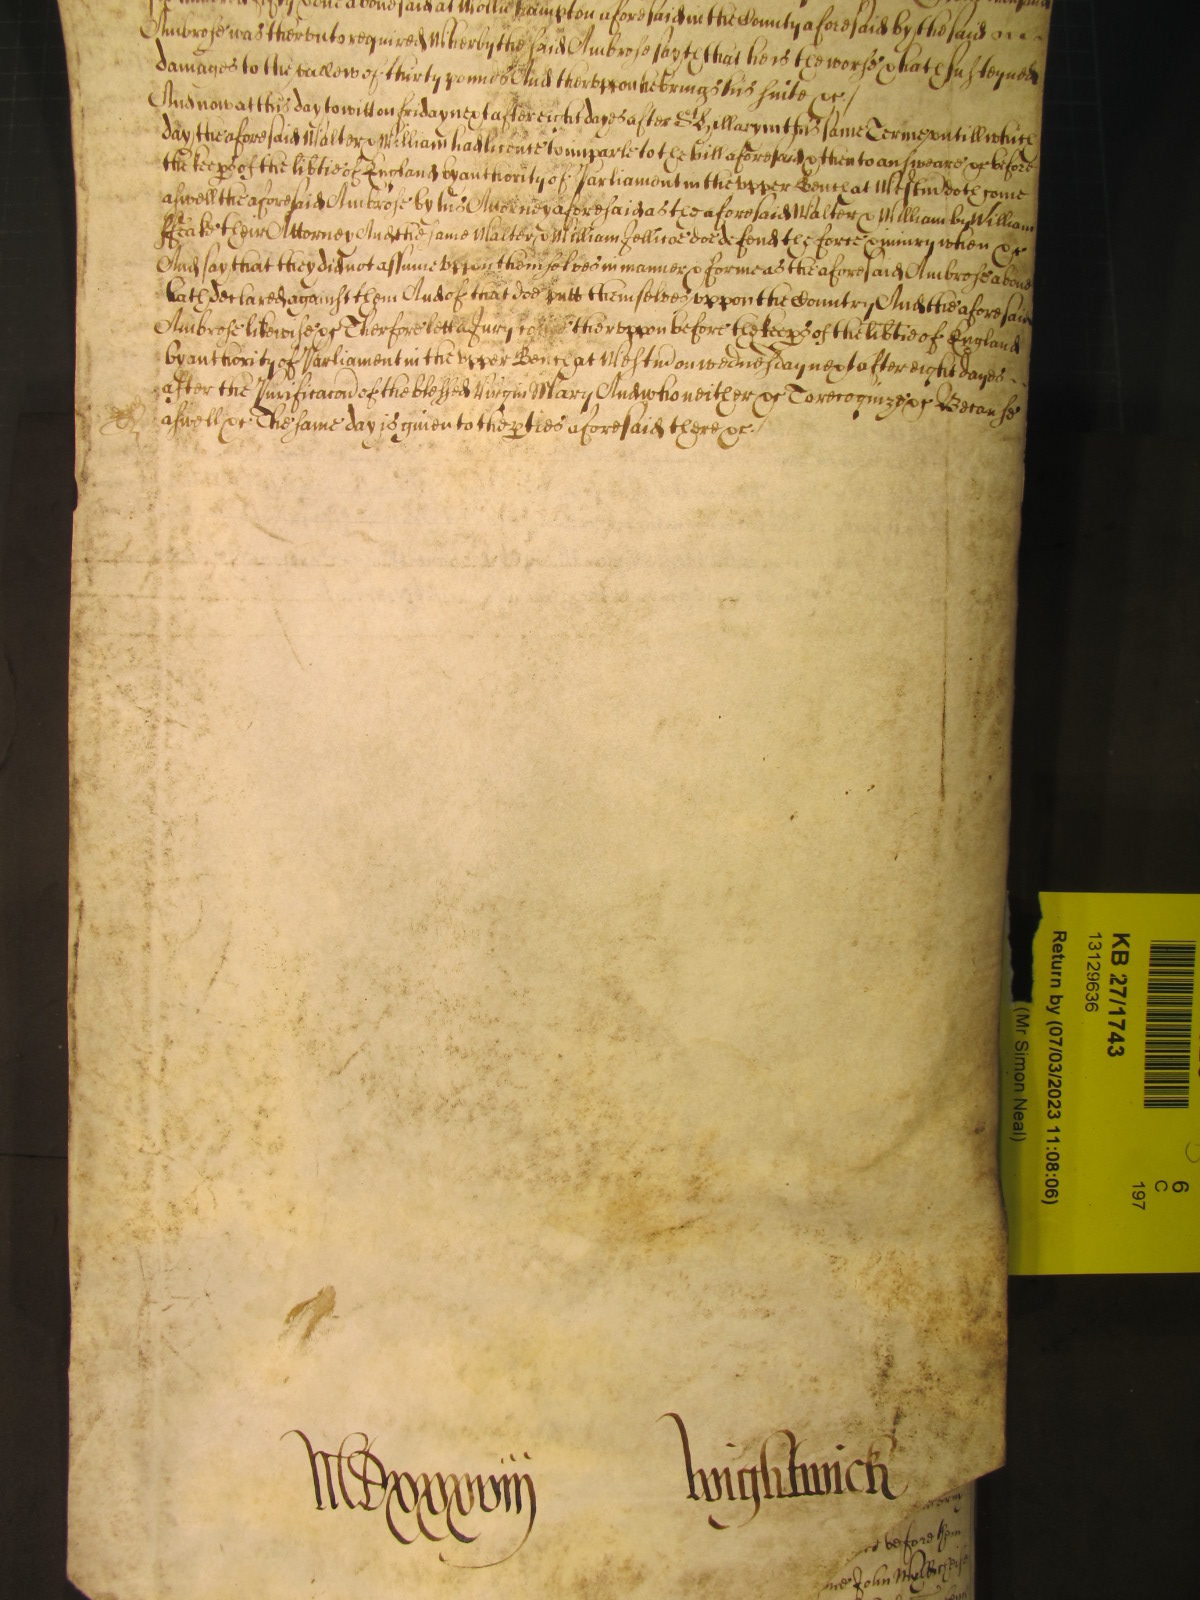 abovesaid at Wolverhampton aforesaid in the County aforesaid by the said
Ambrose was therunto required Wherby the said Ambrose sayth that he is the worse & hath susteyned
damages to the vallew of thirty pounds And thervppon he brings his suite &c /
And now at this day to witt on friday next after eight dayes after St Hillary in this same Terme vntill which
day the aforesaid Walter & William had licence to imparle to the bill aforesaid & then to answeare &c before
the keeps of the libtie of England by authority of Parliament in the vpper Bench at Westm doth come
aswell the aforesaid Ambrose by his Attorney aforesaid as the aforesaid Walter & William by William
their Attorney And the same Walter & William Jellicoe doe defend the force & iniury when &c
And say that they did not assume vppon themselves in manner & forme as the aforesaid Ambrose above
hath declared against them And of that doe putt themselves vppon the Country And the aforesaid
Ambrose likewise &c Therfore lett a Jury come thervppon before the keeps of the libtie of England
by authority of Parliament in the vpper Bench at Westm on wednesday next after eight dayes
after the Purificacon of the blessed Virgin Mary And who neither &c To recognize &c Because
aswell &c The same day is given to the pties aforesaid there &c /
MDxxxxviij wightwick
before
John
KB 27/1743
13129636
Return by (07/03/2023 11:08:06)
(Mr Simon Neal)
6
C
197